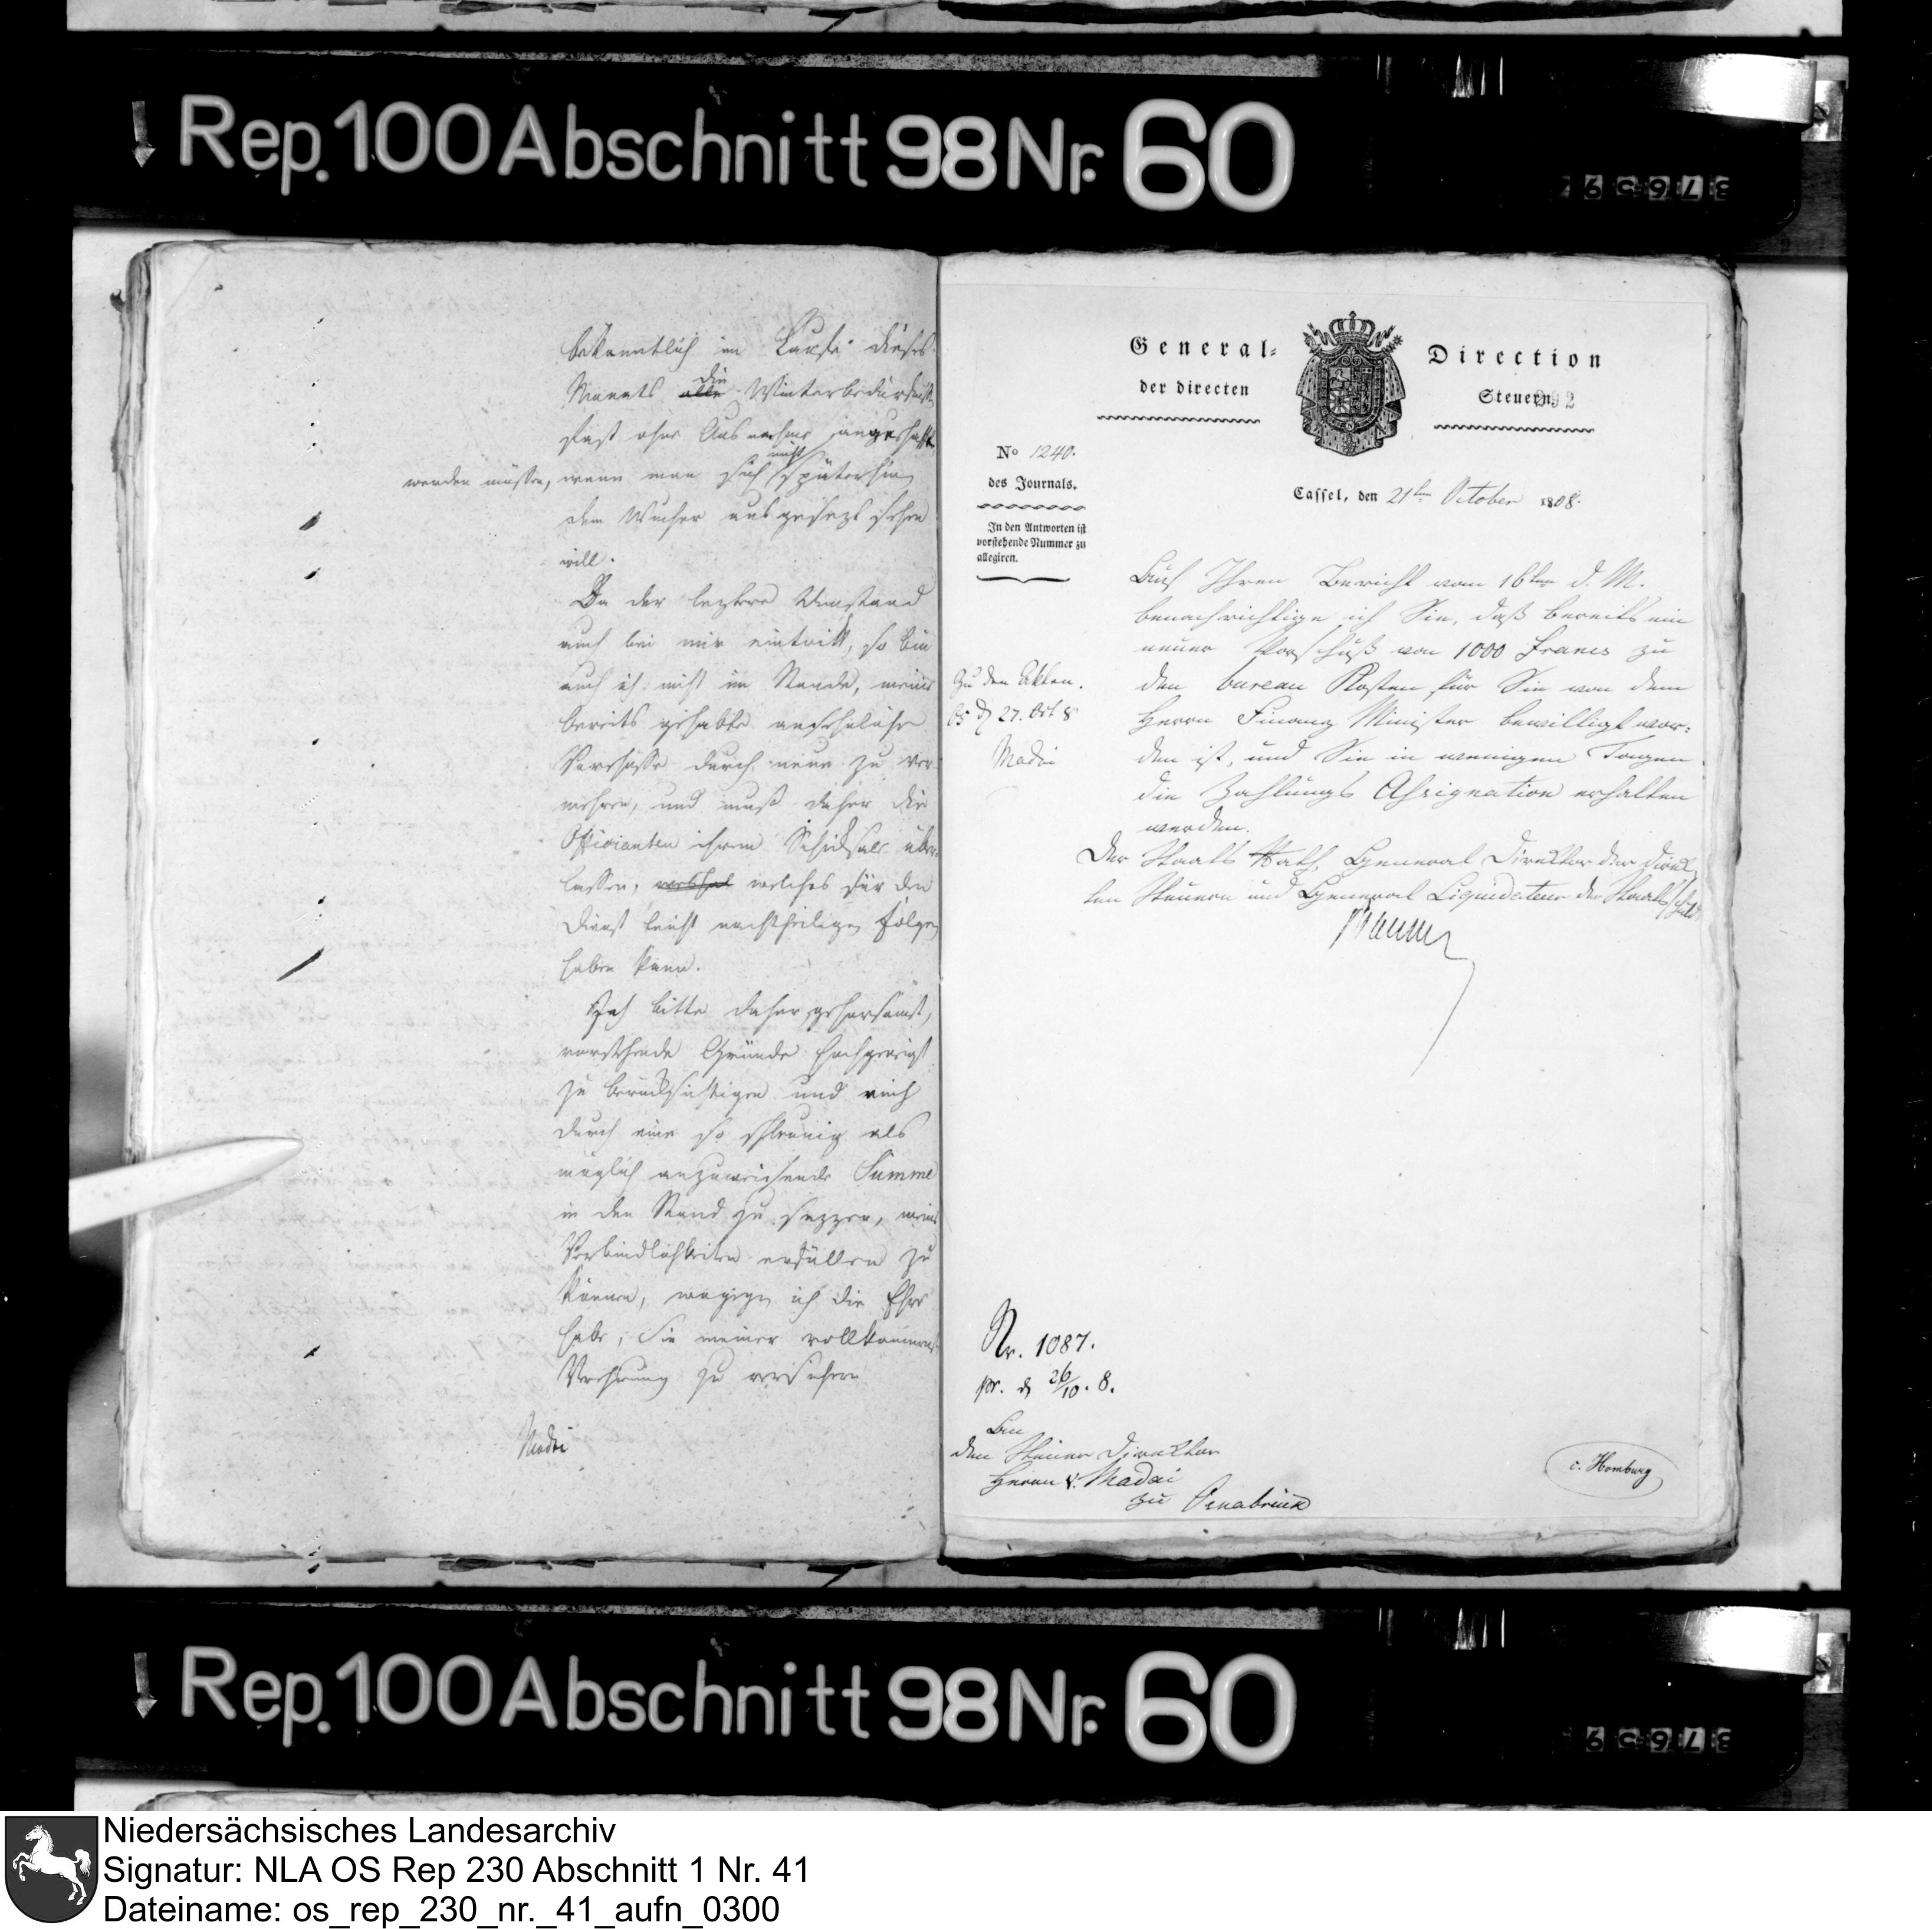 Rep. 100 Abschnitt 98 Nr. 60
bekanntlich im Laufe dieses
Monats alle die Winterbedürfniße
fast ohne Ausnahme angeschafft
werden müssen, wenn man sich nicht späterhin
dem Wucher ausgesezt sehen
will.
Da der leztere Umstand
auch bei mir eintritt, so bin
auch ich nicht im Stande, meine
bereits gehabte ansehnliche
Vorschüsse durch neue zu ver
mehren, und muß daher die
Officianten ihrem Schicksale über
lassen, welches für den
Dienst leicht nachtheilige Folgen
haben kann.
Ich bitte daher gehorsamst,
vorstehende Gründe hochgeneigt
zu berücksichtigen und mich
durch eine so schleunig als
möglich anzuweisende Summe
in den Stand zu sezzen, meine
Verbindlichkeiten erfüllen zu
können, wogegen ich die Ehre
habe, Sie meiner vollkommenen
Verehrung zu versichern
Madai
General- Direction
der directen Steuern
292
No 1240.
des Journals.
In den Antworten ist
vorstehende Nummer zu
allegiren.
Cassel, den 21ten October 1808.
Auf Ihren Bericht vom 16ten d. M.
benachrichtige ich Sie, daß bereits ein
neuer Vorschuß von 1000 Francs zu
den bureau Kosten für Sie von dem
Herrn Finanz Minister bewilligt wor-
den ist, und Sie in wenigen Tagen
die Zahlungs Assignation erhalten
werden.
Der Staats Rath, General Direktor der direk
ten Steuern und General Liquidateur der Staats Schuld
Zu den Akten.
27. Oct 8
Madai
Nr. 1087.
pr. d 26/10. 8.
An
den Steuer Direktor
Herrn v. Madai
zu Osnabrück
c. Homburg
Rep. 100 Abschnitt 98 Nr. 60
Niedersächsisches Landesarchiv
Signatur: NLA OS Rep 230 Abschnitt 1 Nr. 41
Dateiname: os_rep_230_nr._41_aufn_0300